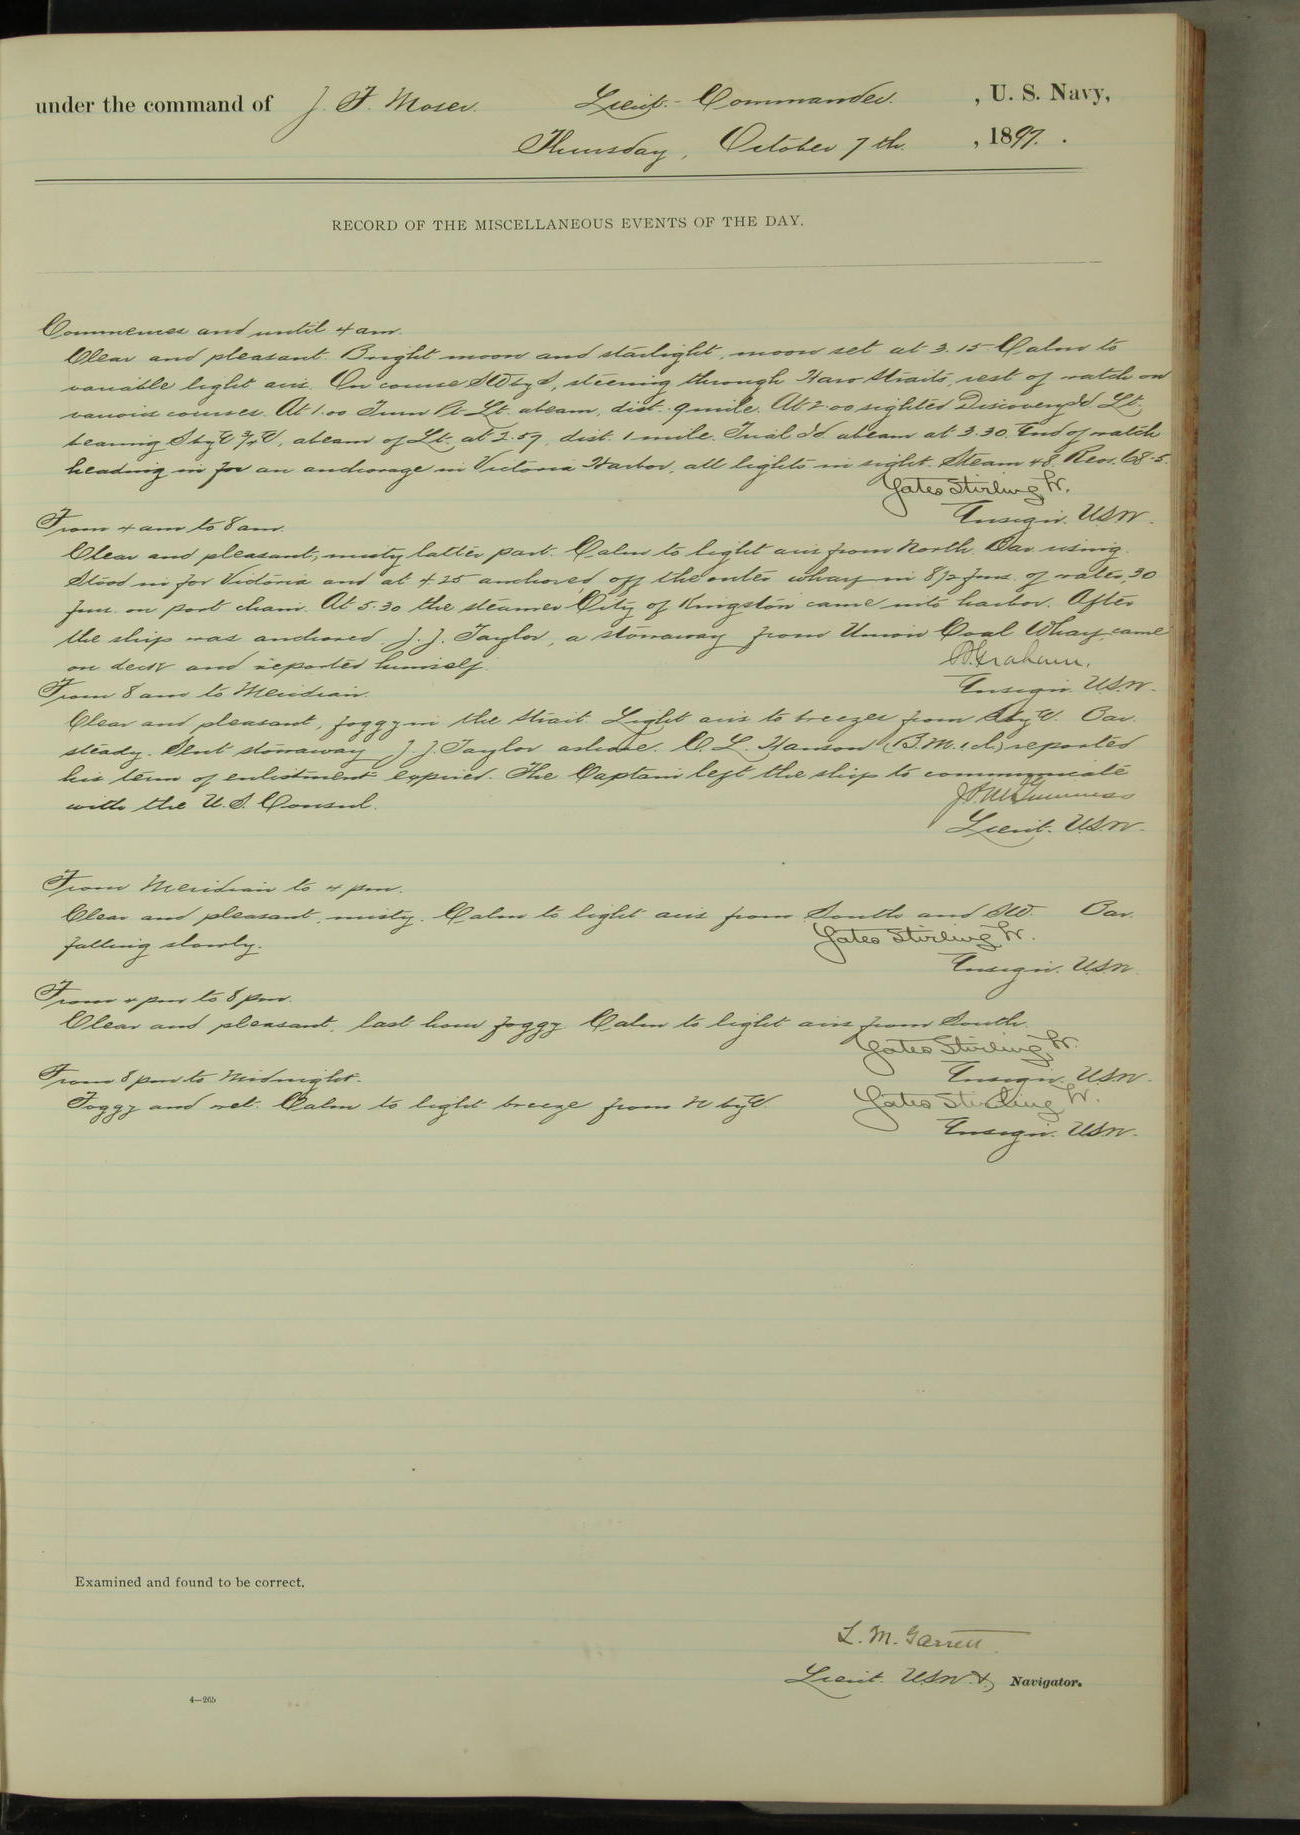 under the command of J. F. Moser. Lieut.- Commander. , U. S. Navy,
Thursday, October 7th. , 1897. .
RECORD OF THE MISCELLANEOUS EVENTS OF THE DAY.
Commences and until 4 am.
Clear and pleasant. Bright moon and starlight, moon set at 3.15. Calm to
variable light airs. On course SW by S, steering through Haro Straits, rest of watch on
various courses. At 1.00 Turn Pt. Lt. abeam, dist. .9 mile. At 2.00 sighted Discovery Id Lt.
bearing S by E 3/4 E, abeam of Lt. at 2.57, dist. 1 mile. Trial Id abeam at 3.30. End of watch
heading in for an anchorage in Victoria Harbor, all lights in sight. Steam 48. Revs. 68.5.
Yates Stirling Jr.
Ensign. USN.
From 4 am to 8 am.
Clear and pleasant, misty latter part. Calm to light airs from North. Bar. rising.
Stood in for Victoria and at 4.25 anchored off the outer wharf in 8 1/2 fms. of water, 30
fms. on port chain. At 5.30 the steamer City of Kingston came into harbor. After
the ship was anchored J. J. Taylor, a stowaway from Union Coal Wharf, came
on deck and reported himself.
Graham.
Ensign. USN.
From 8 am to Meridian.
Clear and pleasant, foggy in the Strait. Light airs to breezes from S by E. Bar.
steady. Sent stowaway J. J. Taylor ashore. C. L. Hanson (B.M. 1 cl.) reported
his term of enlistment expired. The Captain left the ship to communicate
with the U.S. Consul.
McGuinness
Lieut. USN.
From Meridian to 4 pm.
Clear and pleasant, misty. Calm to light airs from South and SW. Bar.
falling slowly.
Yates Stirling Jr.
Ensign. USN.
From 4 pm to 8 pm.
Clear and pleasant, last hour foggy. Calm to light airs from South.
Yates Stirling Jr.
Ensign. USN.
From 8 pm to Midnight.
Foggy and wet. Calm to light breeze from N by E.
Yates Stirling Jr.
Ensign. USN.
Examined and found to be correct.
L. M. Garrett
Lieut. USN. &, Navigator.
4—265